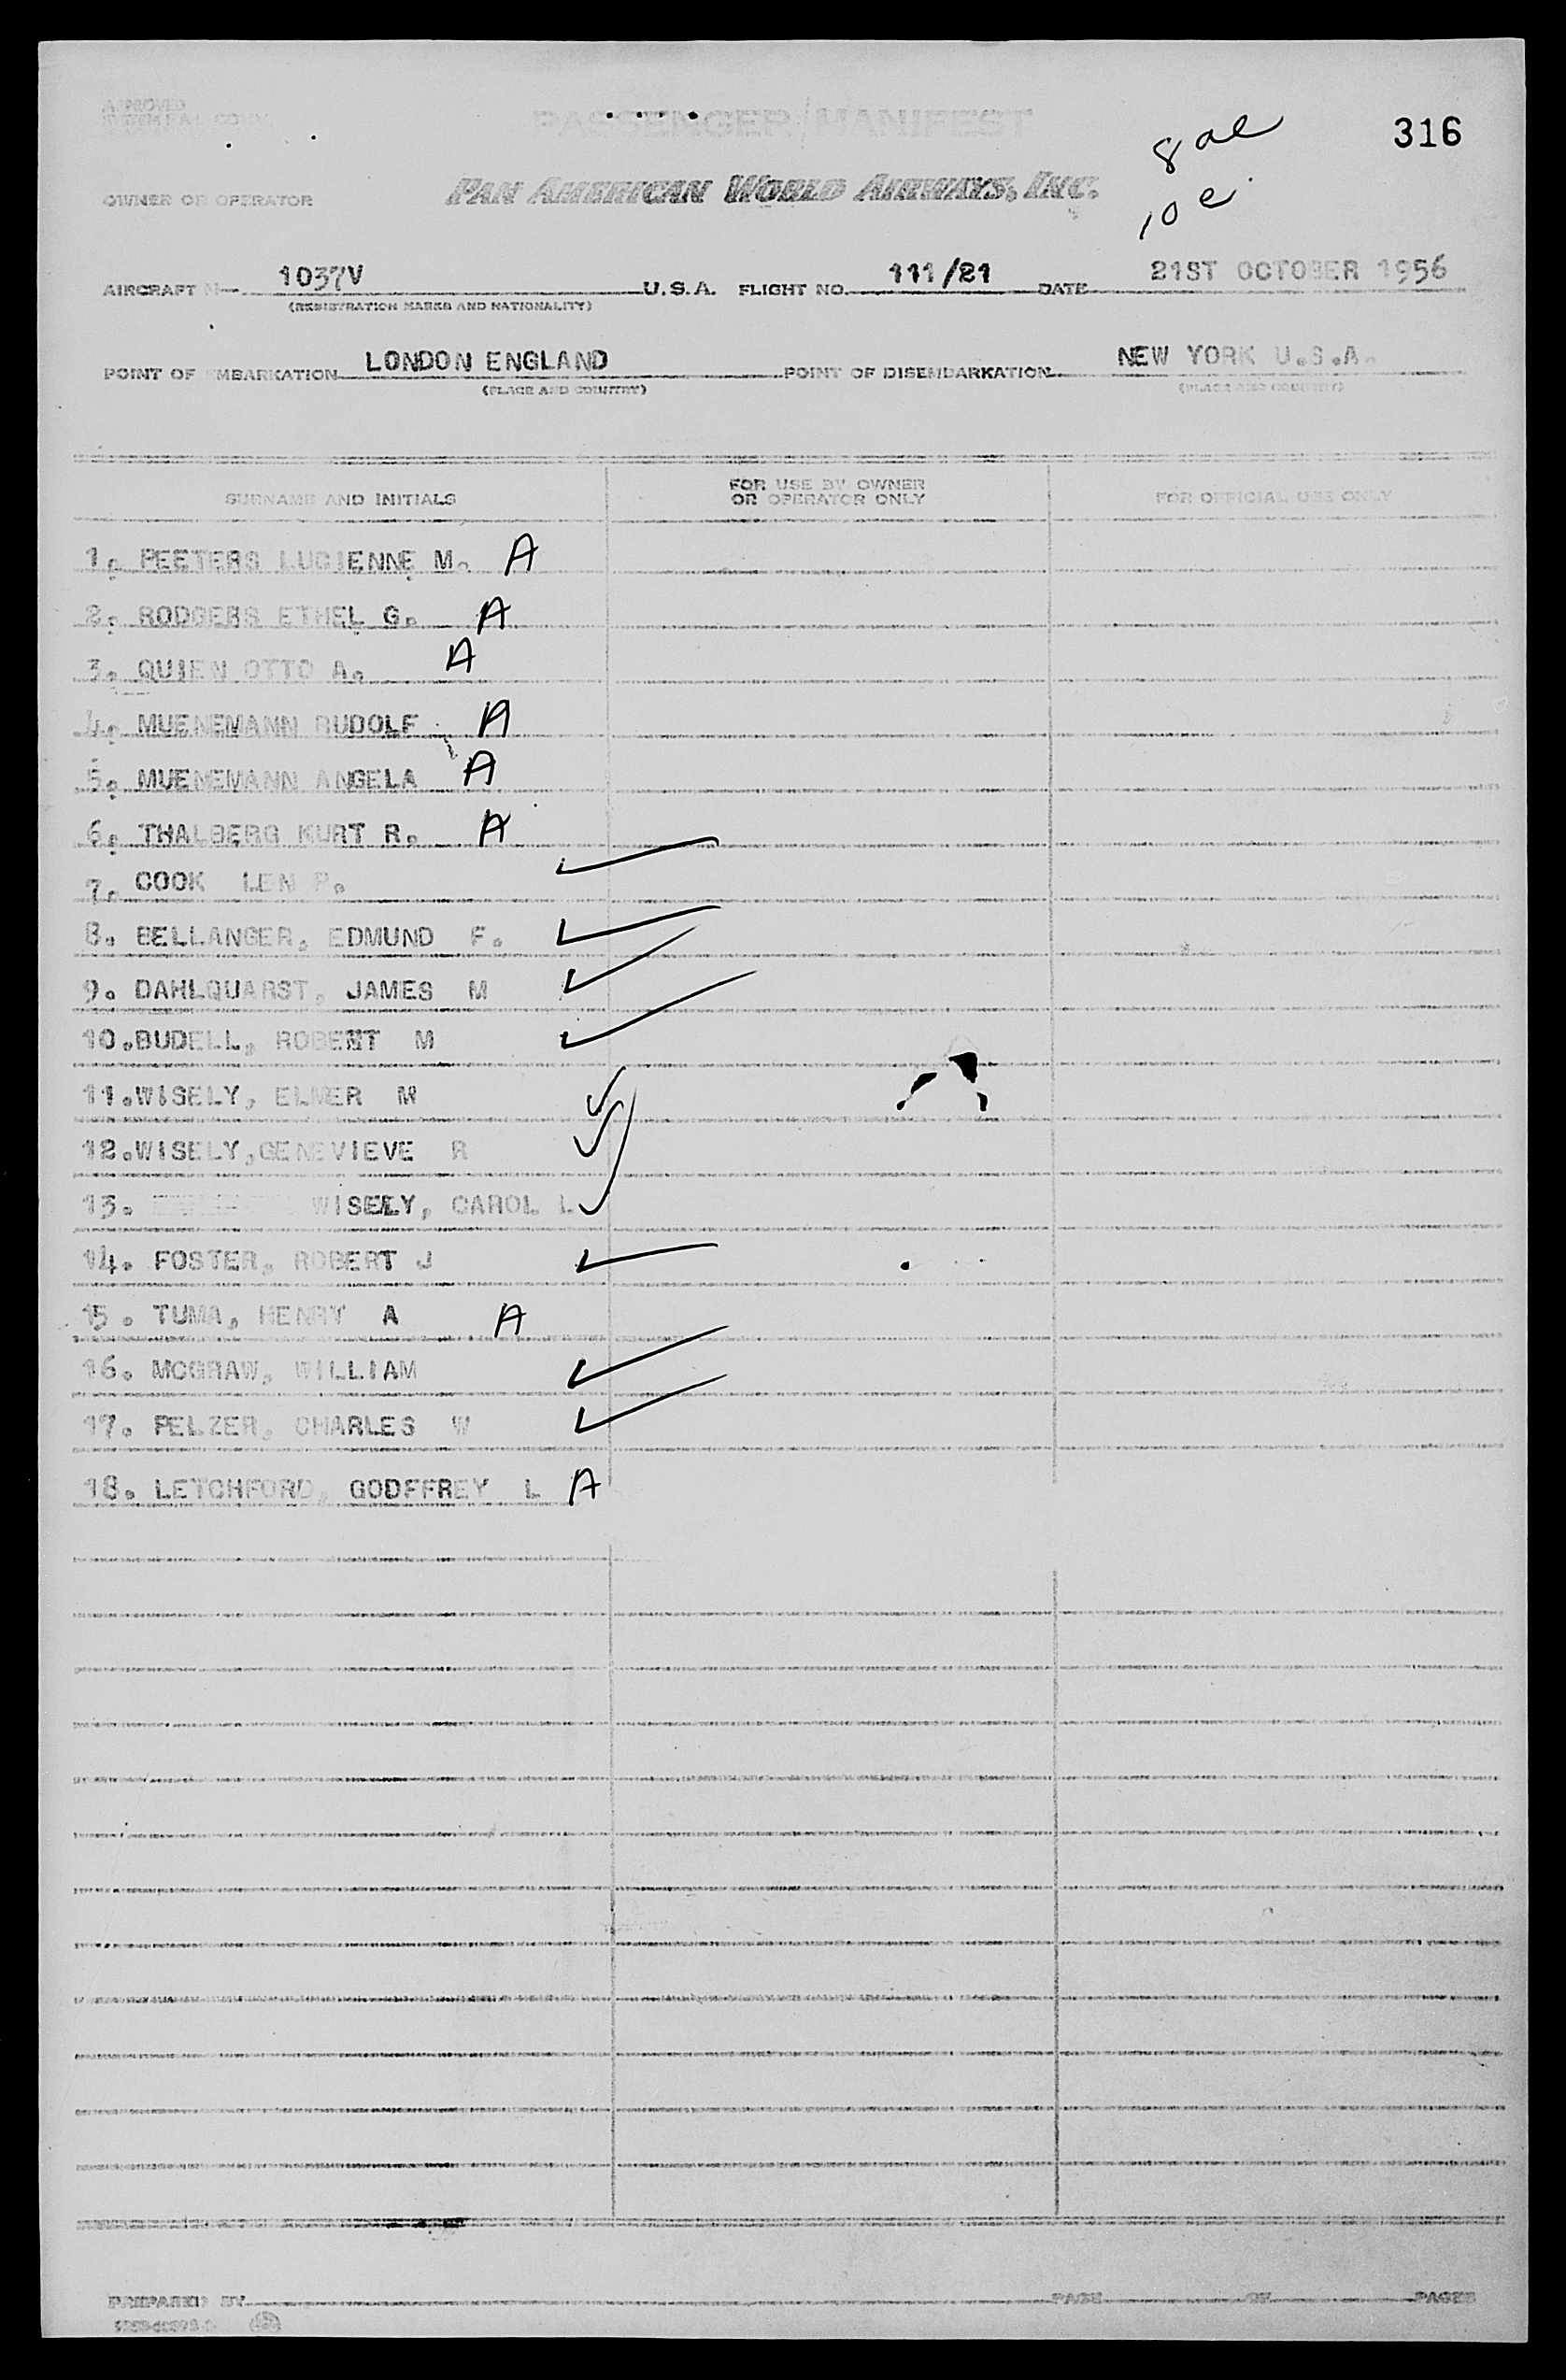 316
PASSENGER MANIFEST
8 ae
10 e
OWNER OR OPERATOR PAN AMERICAN WORLD AIRWAYS, INC.
AIRCRAFT N- 1037V U.S.A. FLIGHT NO. 111/21 DATE 21ST OCTOBER 1956
(REGISTRATION MARKS AND NATIONALITY)
POINT OF EMBARKATION LONDON ENGLAND POINT OF DISEMBARKATION NEW YORK U.S.A.
(PLACE AND COUNTRY) (PLACE AND COUNTRY)
SURNAME AND INITIALS FOR USE BY OWNER OR OPERATOR ONLY FOR OFFICIAL USE ONLY
1. PEETERS LUCIENNE M. A
2. RODGERS ETHEL G. A
3. QUIEN OTTO A. A
4. MUENEMANN RUDOLF A
5. MUENEMANN ANGELA A
6. THALBERG KURT R. A
7. COOK LEN P. ✓
8. BELLANGER, EDMUND F. ✓
9. DAHLQUARST, JAMES M ✓
10.BUDELL, ROBERT M ✓
11.WISELY, ELMER M ✓
12.WISELY,GENEVIEVE R ✓
13. WISELY, CAROL L ✓
14. FOSTER, ROBERT J ✓
15. TUMA, HENRY A A
16. MCGRAW, WILLIAM ✓
17. PELZER, CHARLES W ✓
18. LETCHFORD, GODFFREY L A
PREPARED BY PAGE OF PAGES